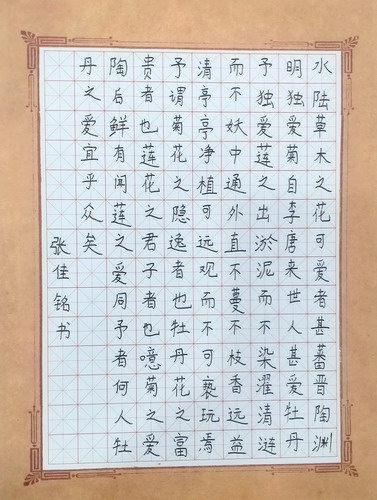 水陆草木之花可爱者甚蕃晋陶渊
明独爱菊自李唐来世人甚爱牡丹
予独爱莲之出淤泥而不染濯清涟
而不妖中通外直不蔓不枝香远益
清亭亭净植可远观而不可亵玩焉
予谓菊花之隐逸者也牡丹花之富
贵者也莲花之君子者也噫菊之爱
陶后鲜有闻莲之爱同予者何人牡
丹之爱宜乎众矣
张佳铭书